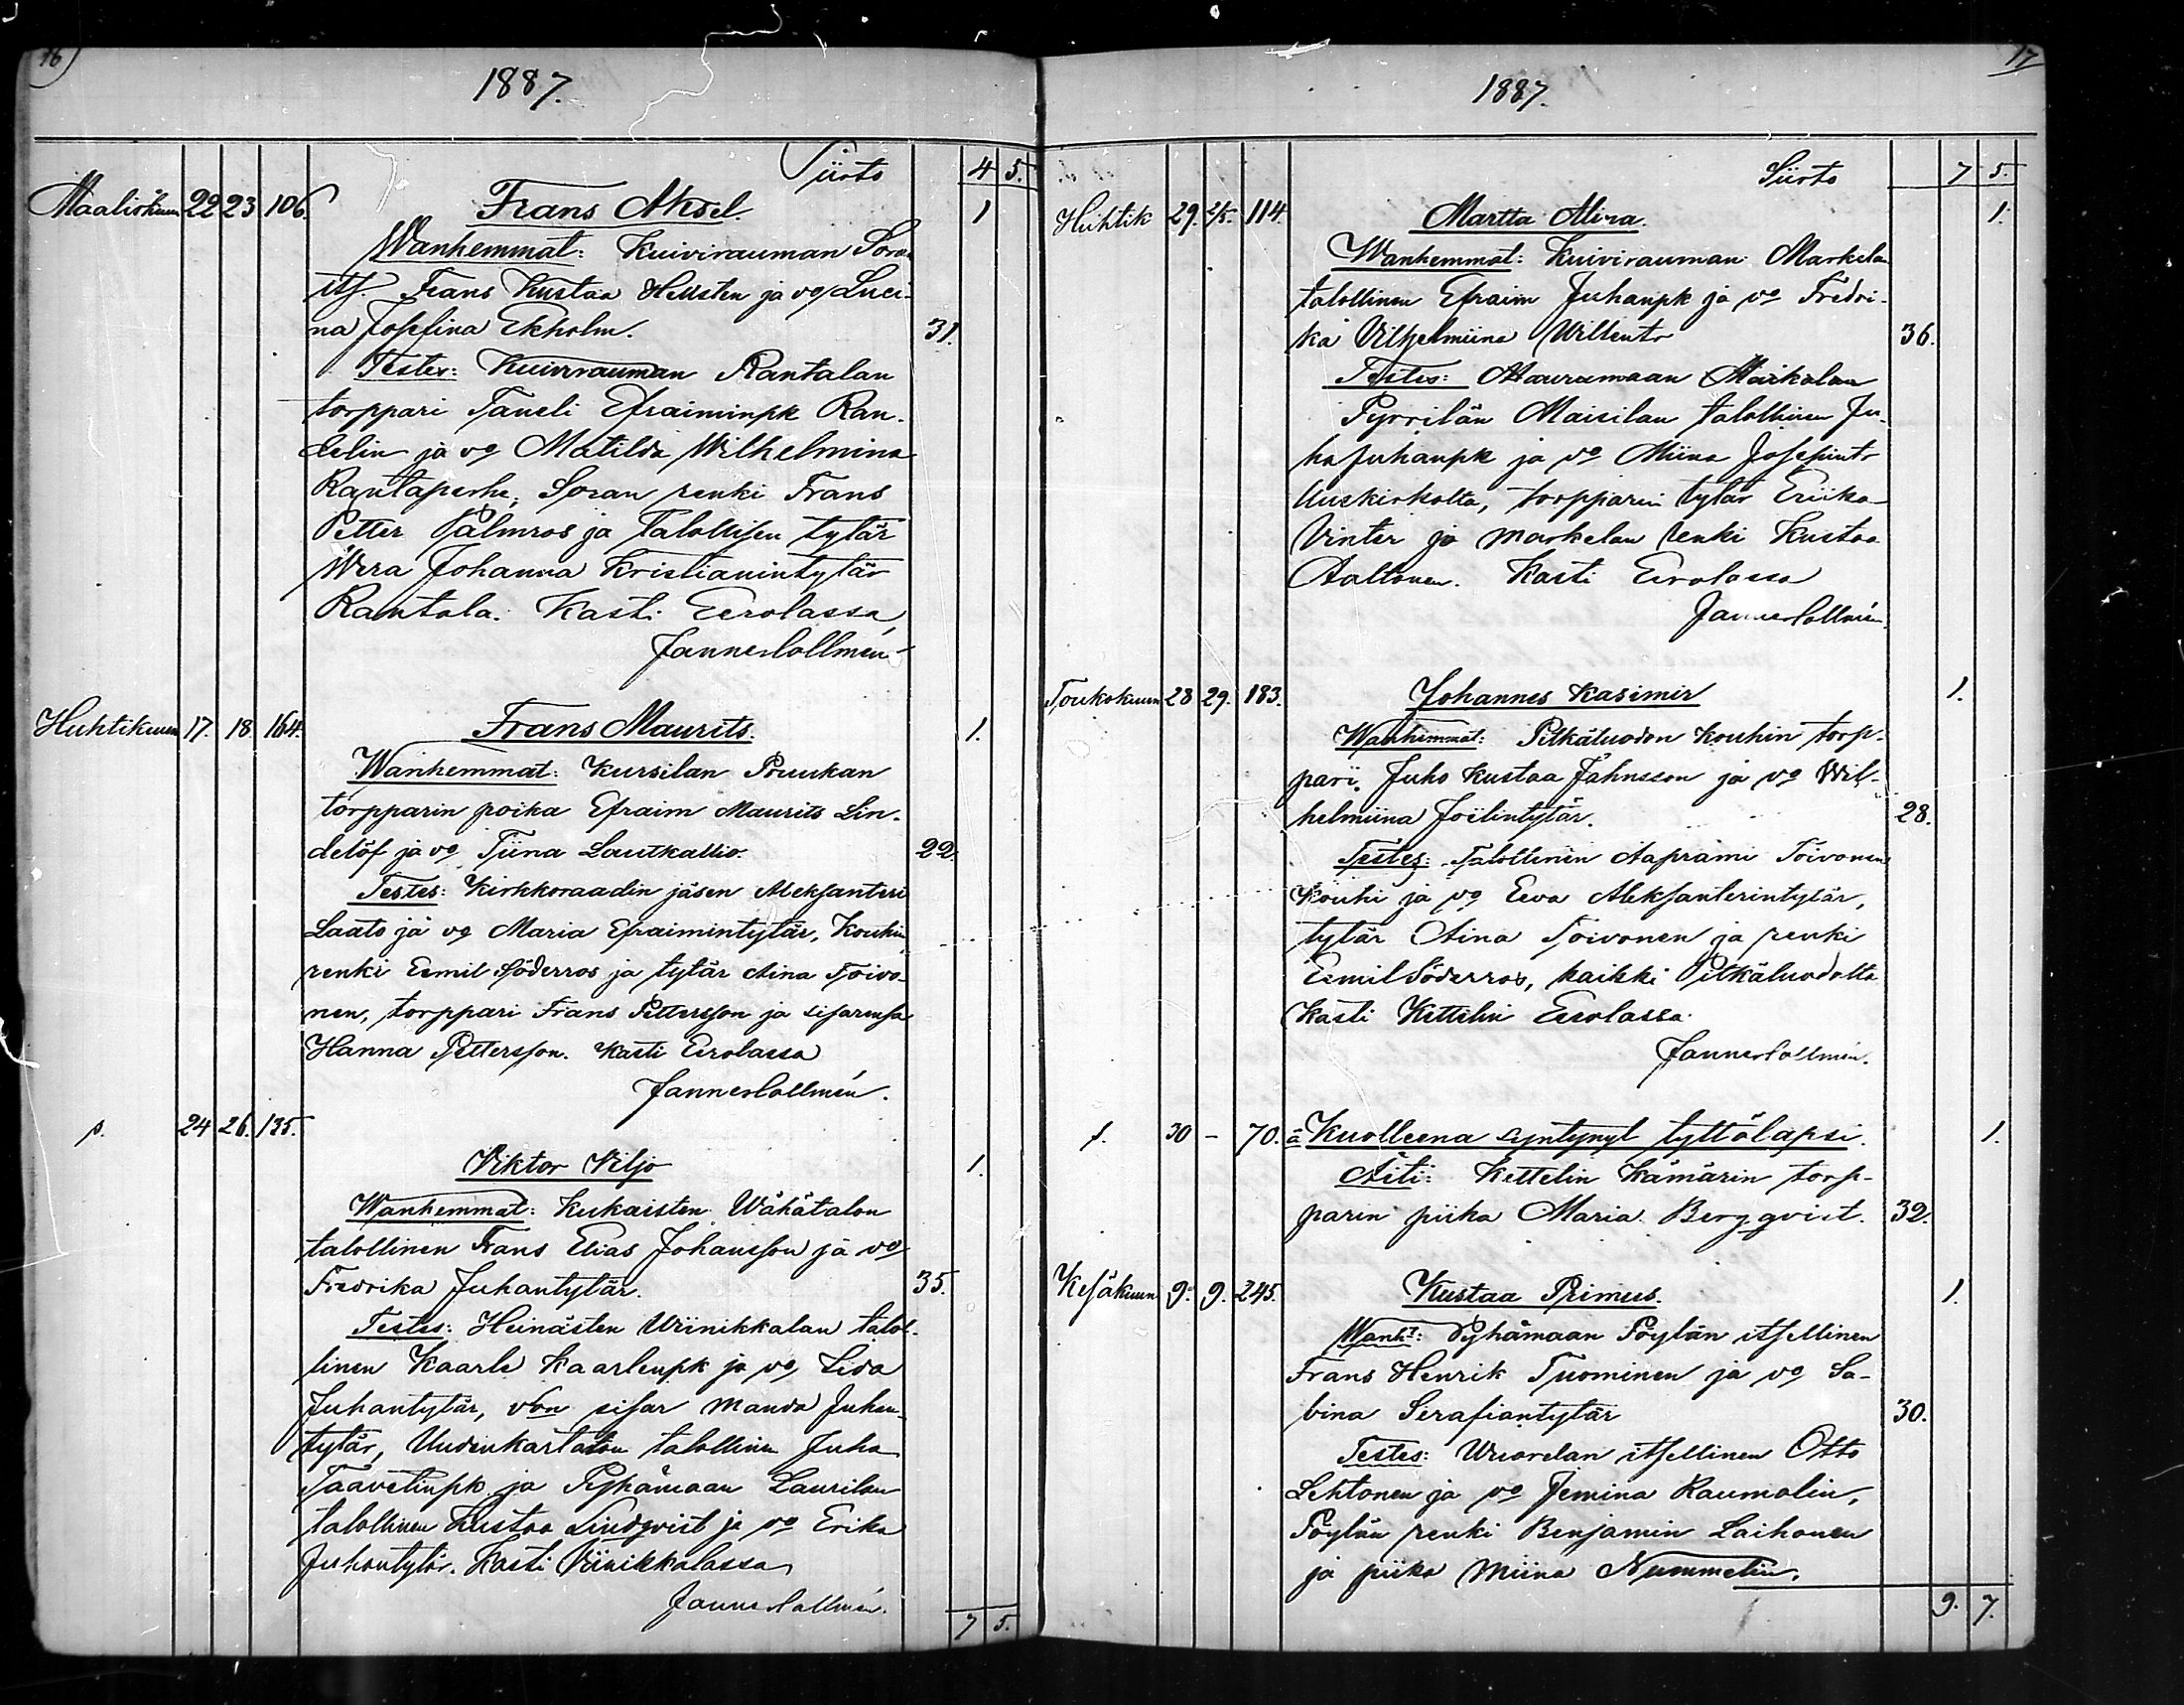 16)
1887.
Siirto 4 5.
Maaliskuun 22 23 106. Frans Aksel. 1
Wanhemmat: Kuivirauman Soran
its. Frans Kustaa Hellsten ja vo Luci-
na Josefina Ekholm. 31.
Testes: Kuivirauman Rantalan
torppari Taneli Efraiminpk Ran-
delin ja vo Matilda Wilhelmina
Rantaperhe, Soran renki Frans
Petter Palmros ja Talollisen tytär
Wera Johanna Kristianintytär
Rantala. Kasti Eerolassa
Janne Collmén
Huhtikuun 17. 18. 164. Frans Maurits. 1.
Wanhemmat: Kursilan Pruukan
torpparin poika Efraim Maurits Lin-
delöf ja vo Tiina Lautkallio. 22.
Testes: Kirkkoraadin jäsen Aleksanteri
Laato ja vo Maria Efraimintytär, Kouhin
renki Eemil Söderros ja tytär Aina Toivo-
nen, torppari Frans Pettersson ja sisarensa
Hanna Pettersson. Kasti Eerolassa
Janne Collmén.
s. 24 26. 135.
Viktor Viljo 1.
Wanhemmat: Kukaisten Wähätalon
talollinen Frans Elias Johansson ja vo
Fredrika Juhantytär. 35.
Testes: Heinästen Wiinikkalan talol-
linen Kaarle Kaarlenpk ja vo Lida
Juhantytär, von sisar Manda Juhan-
tytär, Uudenkartanon talollinen Juha
Taavetinpk ja Pyhämaan Laurilan
talollinen Kustaa Lindqvist ja vo Erika
Juhantytär. Kasti Viinikkalassa
Janne Collmén.
7 5.
17
1887.
Siirto 7 5.
Huhtik 29. 2/5. 114. Martta Alina. 1.
Wanhemmat: Kuivirauman Markelan
talollinen Efraim Juhanpk ja vo Fredri-
ka Vilhelmiina Willentr 36.
Testes:
Pyrrilän Maisilan talollinen Ju-
ha Juhanpk ja vo Miina Josepintr
Uuskirkolta, torpparin tytär Eriika
Vinter ja Markelan renki Kustaa
Aaltonen. Kasti Eerolassa
Janne Collmén.
Toukokuun 28 29. 183. Johannes Kasimir 1.
Wanhemmat: Pitkäluodon Kouhin torp-
pari Juho Kustaa Jahnsson ja vo Wil-
helmiina Joelintytär. 28.
Testes: Talollinen Aaprami Toivonen
Kouhi ja vo Eeva Aleksanterintytär,
tytär Aina Toivonen ja renki
Eemil Söderros, kaikki Pitkäluodolta
Kasti Kettelin Eerolassa.
Janne Collmén.
s. 30 – 70. ä Kuolleena syntynyt tyttölapsi. 1.
Äiti: Kettelin Kämärin torp-
parin piika Maria Bergqvist. 32.
Kesäkuun 9. 9. 245. Kustaa Primus. 1.
Wanht: Pyhämaan Pöylän itsellinen
Frans Henrik Tuominen ja vo Sa-
bina Serafiantytär 30.
Testes: Wuorelan itsellinen Otto
Lehtonen ja vo Jemina Raumolin,
Pöylän renki Benjamin Laihonen
ja piika Miina Nummelin.
9. 7.